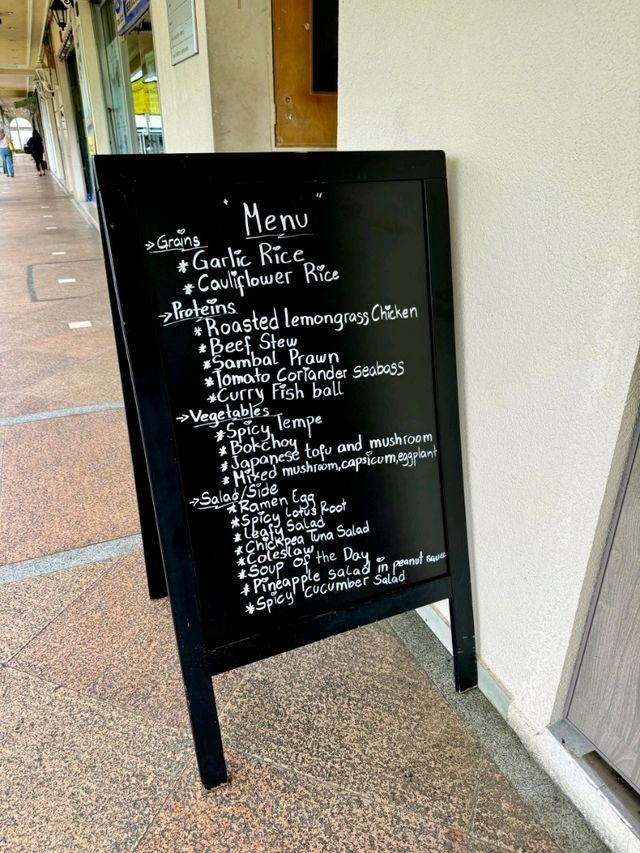 "Menu"
→Grains
*Garlic Rice
*Cauliflower Rice
→Proteins
*Roasted lemongrass Chicken
*Beef Stew
*Sambal Prawn
*Tomato Coriander seabass
*Curry Fish ball
→Vegetables
*Spicy Tempe
*Bokchoy
*Japanese tofu and mushroom
*Mixed mushroom,capsicum,eggplant
→Salad/Side
*Ramen Egg
*Spicy Lotus Root
*Leafy Salad
*Chickpea Tuna Salad
*Coleslaw
*Soup of the Day
*Pineapple salad in peanut sauce
*Spicy Cucumber Salad